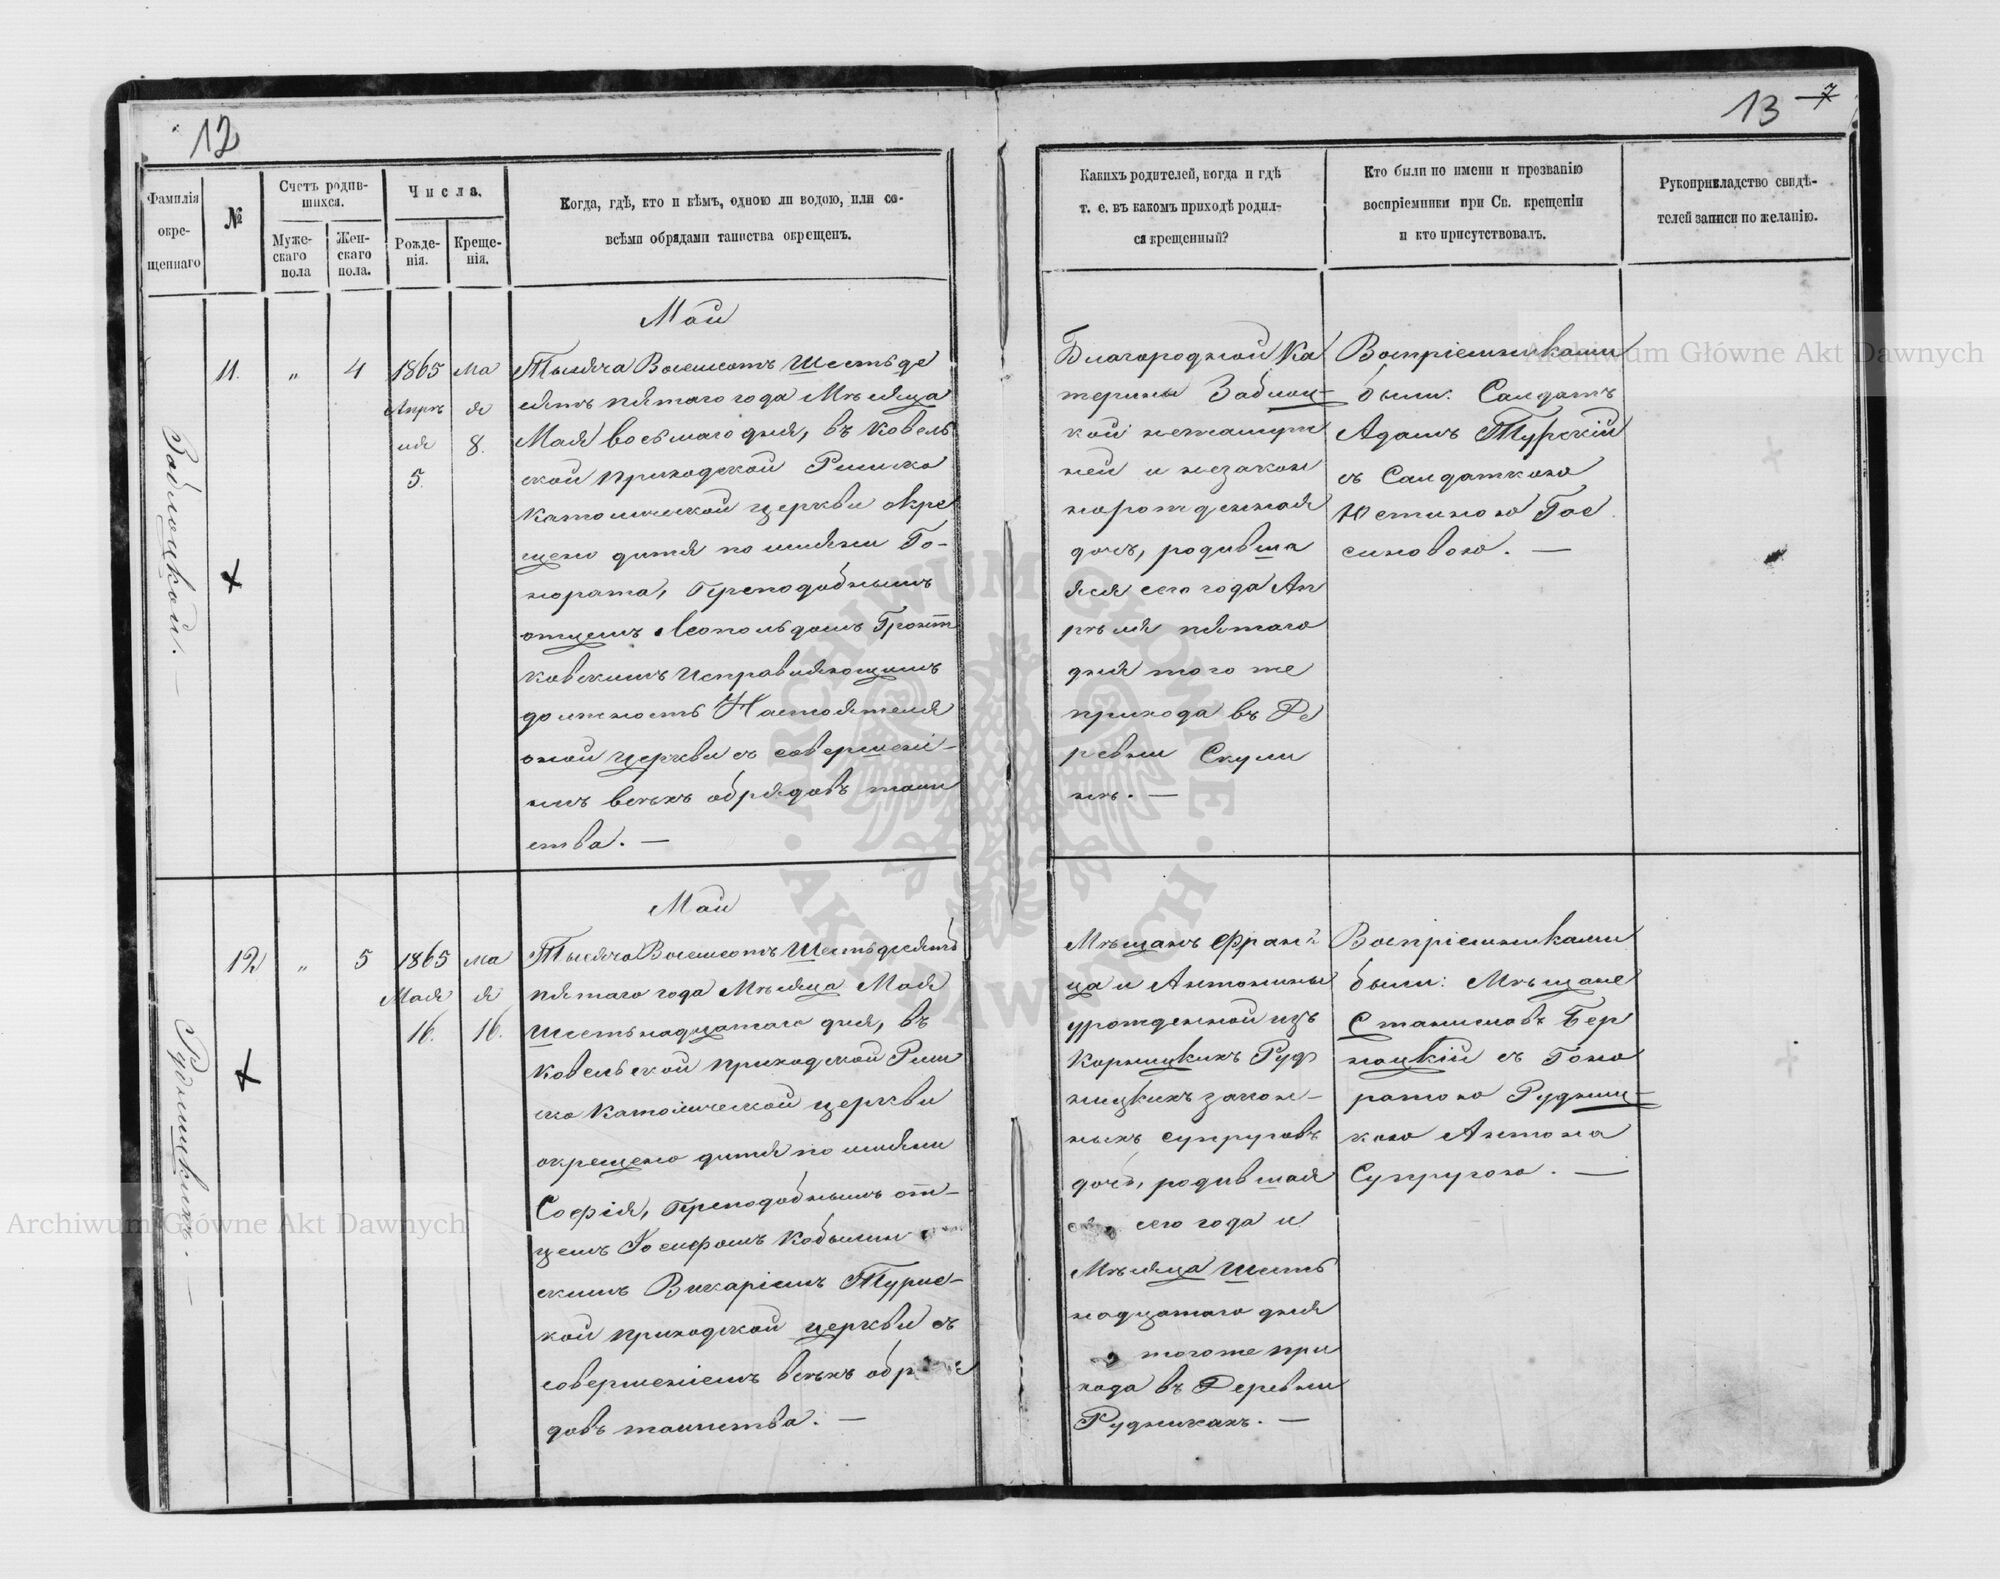 12
Фамилія окре-щеннаго
№
Счетъ родив-шихся.
Муже-скаго пола
Жен-скаго пола.
Числа.
Рожде-нія.
Креще-нія.
Когда, гдѣ, кто и кѣмъ, одною ли водою, или со-
всѣми обрядами таинства окрещенъ.
Заблоцкой. —
11.
"
4
1865
Апрѣ
ля
5.
Ма
я
8.
Май
Тысяча Восемсотъ Шестьде
сятъ пятаго года Мѣсяца
Мая восьмаго дня, въ Ковель
ской приходской Римско
Католической церкви окре
щено дитя по имяни Го-
нората, Преподобнымъ
отцемъ Леопольдомъ
ковскимъ Исправляющимъ
должность Настоятеля
оной церкви съ совершені-
емъ всѣхъ обрядовъ таин
ства. —
Рудницкихъ. —
12
"
5
1865
Мая
16.
Ма
я
16.
Май
Тысяча Восемсотъ Шестьдесятъ
пятаго года Мѣсяца Мая
Шестьнадцатаго дня, въ
Ковельской приходской Рим
ско Католической церкви
окрещено дитя по имяни
Софія, Преподобнымъ от-
цемъ Іосифомъ
скимъ Викаріемъ Турис-
кой приходской церкви съ
совершеніемъ всѣхъ обря
довъ таинства. —
13 7
Какихъ родителей, когда и гдѣ
т. е. въ какомъ приходѣ родил-
ся крещенный?
Кто были по имени и прозванію
воспріемники при Св. крещеніи
и кто присутствовалъ.
Рукоприкладство свидѣ-
телей записи по желанію.
Благородной Ка
терины Заблоц-
кой незамуж
ней и незакон
норожденная
дочь, родивша
яся сего года Ап
рѣля пятаго
дня того же
прихода въ Де
ревни Скули
нѣ. —
Воспріемниками
были: Салдатъ
Адамъ Турскій
съ Салдаткою
Юстиною Гос
синовою. —
Мѣщанъ Фран
ца и Антонины
урожденной изъ
Корницкихъ Руд
ницкихъ закон-
ныхъ супруговъ
дочь, родившая
сего года и
Мѣсяца Шесть
надцатаго дня
тогоже при
хода въ Деревни
Рудникахъ. —
Воспріемниками
были: Мѣщане
Станиславъ Бер
нацкій съ Гоно
ратою Рудниц-
кою Антона
Супругою. —
Archiwum Główne Akt Dawnych
Archiwum Główne Akt Dawnych
· ARCHIWUM GŁÓWNE · AKT DAWNYCH